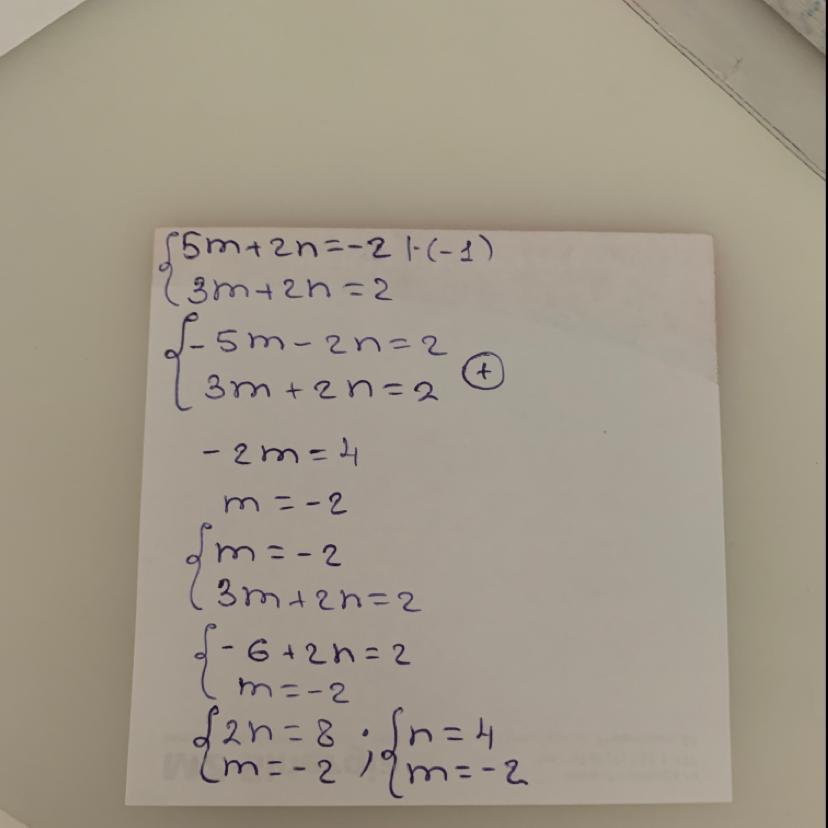 {5m+2n=-2 |·(-1)
{3m+2n=2
{-5m-2n=2
{3m+2n=2 ⊕
-2m=4
m=-2
{m=-2
{3m+2n=2
{-6+2n=2
{m=-2
{2n=8 ; {n=4
{m=-2 {m=-2